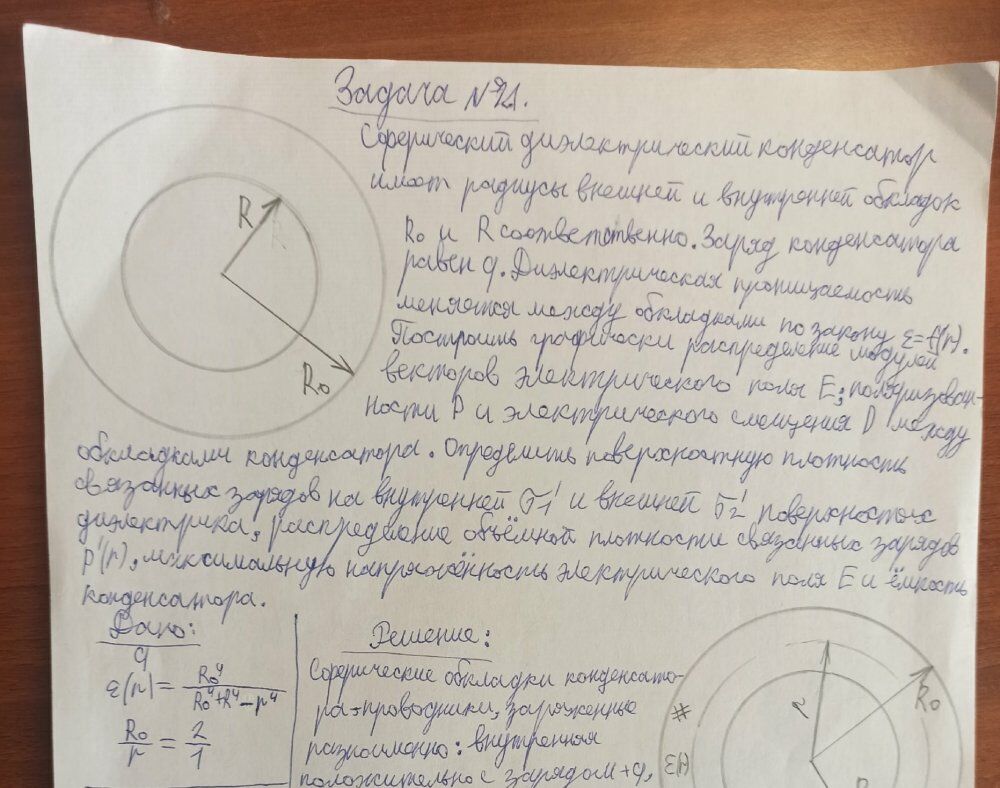 Задача №21.
Сферический диэлектрический конденсатор
имеет радиусы внешней и внутренней обкладок
R
R₀ и R соответственно. Заряд конденсатора
равен q. Диэлектрическая проницаемость
меняется между обкладками по закону ε=f(r).
Построить графически распределение модулей
R₀
векторов электрического поля E; поляризован-
ности P и электрического смещения D между
обкладками конденсатора. Определить поверхностную плотность
связанных зарядов на внутренней σ₁' и внешней σ₂' поверхностях
диэлектрика, распределение объёмной плотности связанных зарядов
ρ'(r), максимальную напряжённость электрического поля E и ёмкость
конденсатора.
Дано:
q
ε(r) = R₀⁴/(R₀⁴+R⁴-r⁴)
R₀/r = 2/1
Решение:
Сферические обкладки конденсато-
ра-проводники, заряженные
разноименно: внутренняя
положительно с зарядом +q,
r
R₀
#
ε(r)